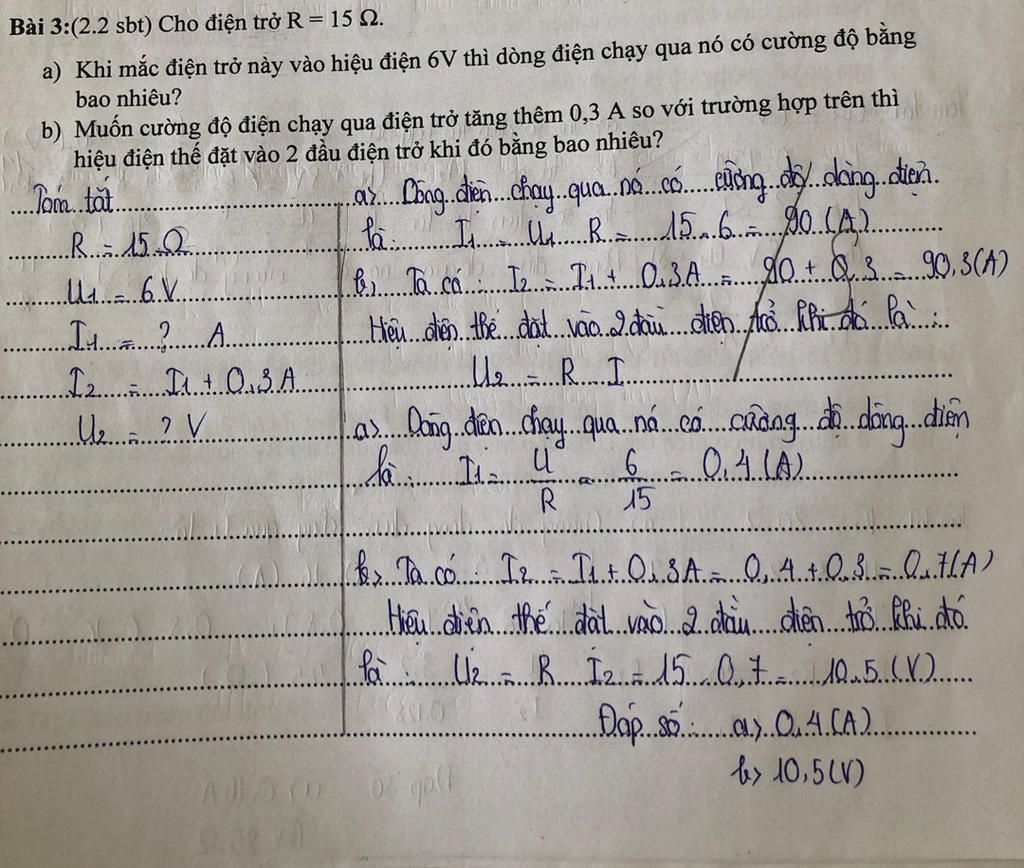 Bài 3:(2.2 sbt) Cho điện trở R = 15 Ω.
a) Khi mắc điện trở này vào hiệu điện 6V thì dòng điện chạy qua nó có cường độ bằng
bao nhiêu?
b) Muốn cường độ điện chạy qua điện trở tăng thêm 0,3 A so với trường hợp trên thì
hiệu điện thế đặt vào 2 đầu điện trở khi đó bằng bao nhiêu?
Tóm tắt
R = 15 Ω
U1 = 6 V
I1 = ? A
I2 = I1 + 0,3A
U2 = ? V
a> Dòng điện chạy qua nó có cường độ dòng điện
là: I1 = U1 . R = 15 . 6 = 90 (A)
b, Ta có : I2 = I1 + 0,3A = 90 + 0,3 = 90,3(A)
Hiệu điện thế đặt vào 2 đầu điện trở khi đó là :
U2 = R . I
a> Dòng điện chạy qua nó có cường độ dòng điện
là : I1 = U/R = 6/15 = 0,4 (A)
b> Ta có : I2 = I1 + 0,3A = 0,4 + 0,3 = 0,7(A)
Hiệu điện thế đặt vào 2 đầu điện trở khi đó
là : U2 = R . I2 = 15 . 0,7 = 10,5 (V)
Đáp số : a> 0,4(A)
b> 10,5(V)